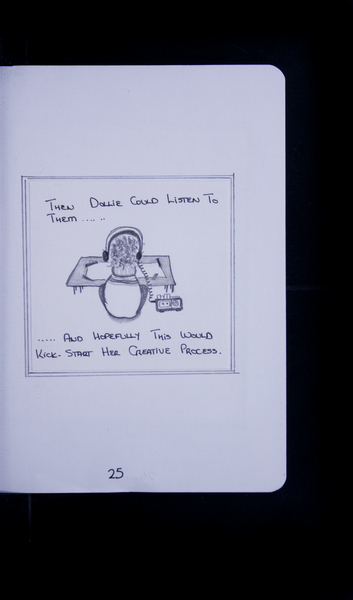 Then Dollie Could Listen To
Them .... ..
..... And Hopefully This Would
Kick-Start Her Creative Process.
25